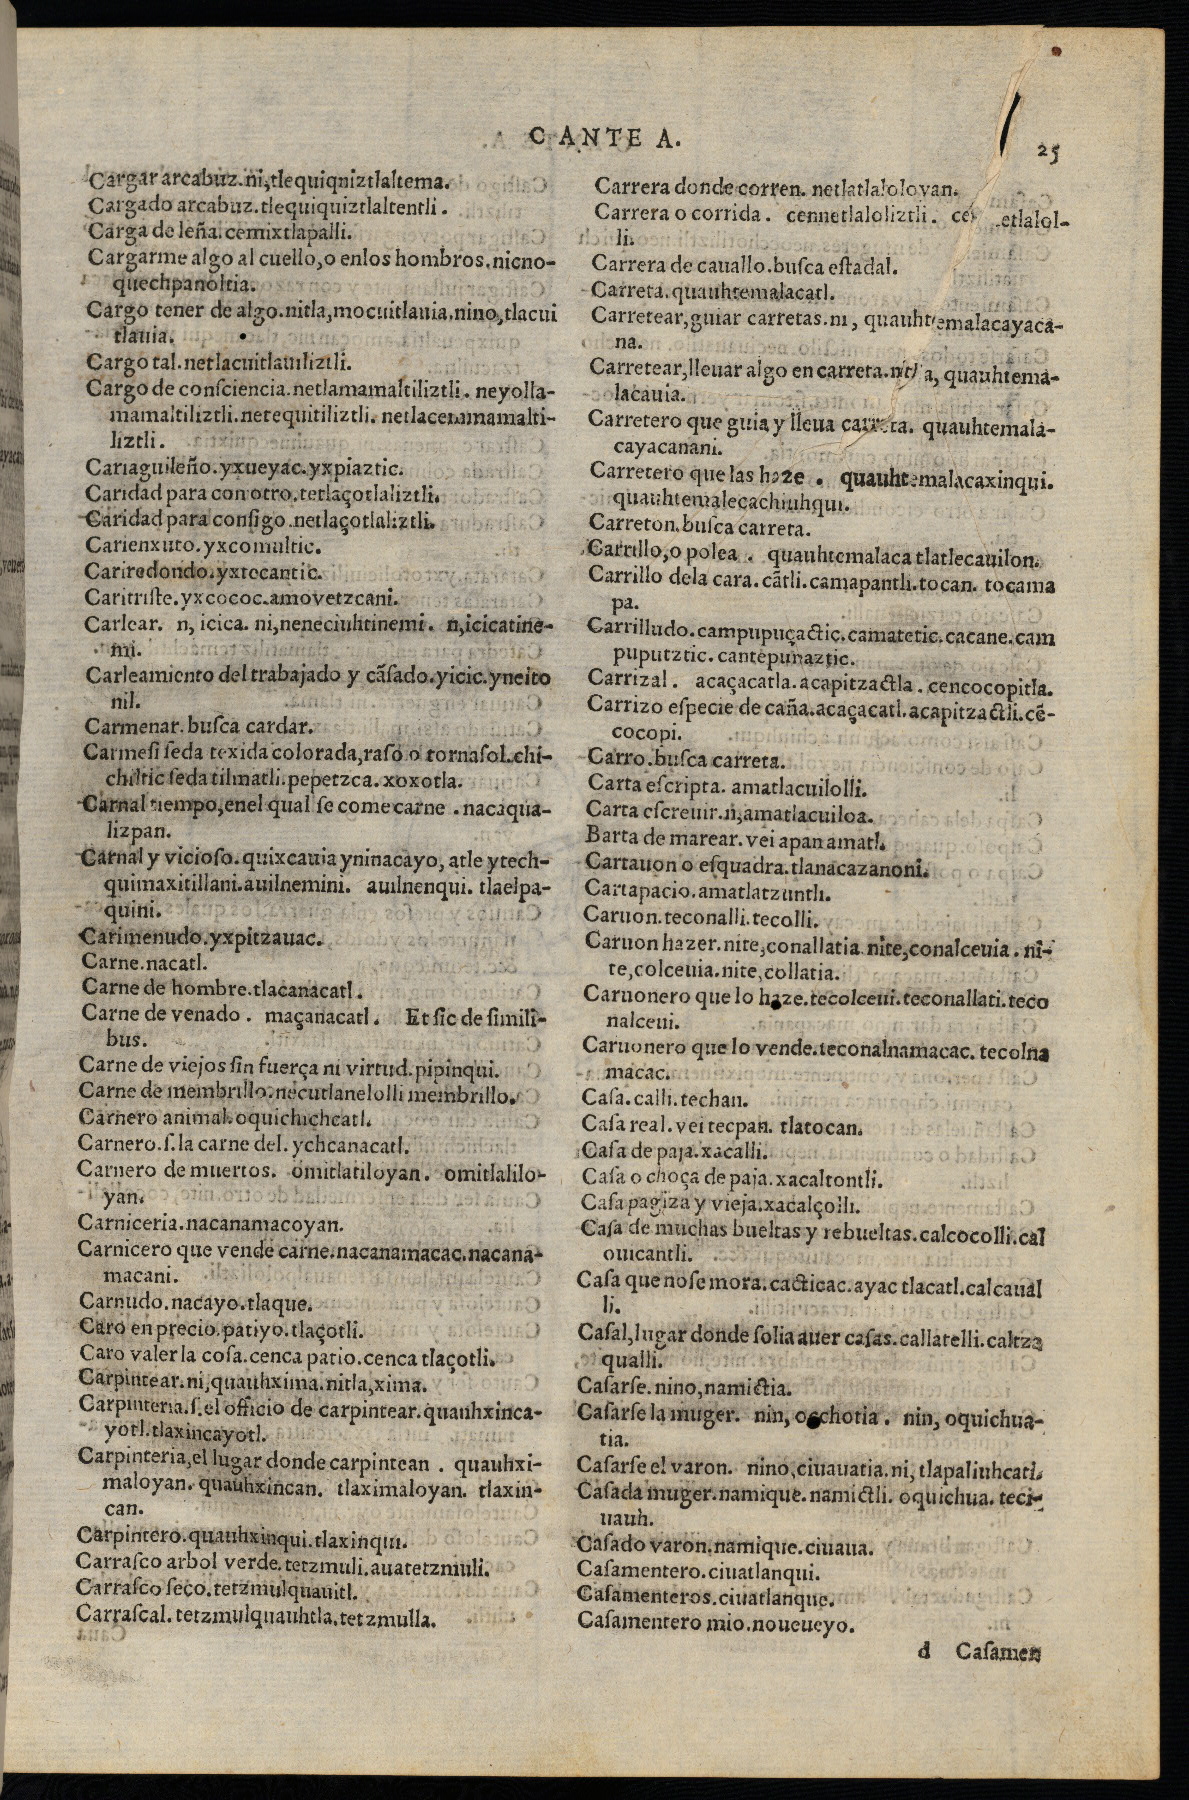 C ANTE A.
25
Cargar arcabuz.ni,tlequiqniztlaltema.
Cargado arcabuz.tlequiquiztlaltentli.
Carga de leña.cemixtlapalli.
Cargarme algo al cuello,o enlos hombros.nicno-
quechpanoltia.
Cargo tener de algo.nitla,mocuitlauia.nino,tlacui
tlauia.
Cargo tal.netlacuitlauiliztli.
Cargo de conſciencia.netlamamaltiliztli. neyolla-
mamaltiliztli.netequitiliztli.netlacemmamalti-
liztli.
Cariaguileño.yxueyac.yxpiaztic.
Caridad para con otro.tetlaçotlaliztli.
Caridad para conſigo.netlaçotlaliztli.
Carienxuto.yxcomultic.
Cariredondo.yxtecantic.
Caritriſte.yxcococ.amovetzcani.
Carlear. n, icica. ni,neneciuhtinemi. n,icicatine-
mi.
Carleamiento del trabajado y cãſado.yicic.yneito
nil.
Carmenar. buſca cardar.
Carmeſi ſeda texida colorada,raſo o tornaſol.chi-
chiltic ſeda tilmatli.pepetzca.xoxotla.
Carnal tiempo,enel qual ſe come carne.nacaqua-
lizpan.
Carnal y vicioſo.quixcauia yninacayo, atle ytech-
quimaxitillani.auilnemini. auilnenqui. tlaelpa-
quini.
Carimenudo.yxpitzauac.
Carne.nacatl.
Carne de hombre.tlacanacatl.
Carne de venado. maçanacatl. Et ſic de ſimili-
bus.
Carne de viejos ſin fuerça ni virtud.pipinqui.
Carne de membrillo.necutlanelolli membrillo.
Carnero animal.oquichichcatl.
Carnero.ſ.la carne del.ychcanacatl.
Carnero de muertos. omitlatiloyan. omitlalilo-
yan.
Carniceria.nacanamacoyan.
Carnicero que vende carne.nacanamacac.nacana-
macani.
Carnudo.nacayo.tlaque.
Caro en precio.patiyo.tlaçotli.
Caro valer la coſa.cenca patio.cenca tlaçotli.
Carpintear.ni,quauhxima.nitla,xima.
Carpinteria.ſ.el officio de carpintear.quauhxinca-
yotl.tlaxincayotl.
Carpinteria,el lugar donde carpintean. quauhxi-
maloyan. quauhxincan. tlaximaloyan. tlaxin-
can.
Carpintero.quauhxinqui.tlaxinqui.
Carraſco arbol verde.tetzmuli.auatetzmuli.
Carraſco ſeco.tetzmulquauitl.
Carraſcal.tetzmulquauhtla.tetzmulla.
Carrera donde corren. netlatlaloloyan.
Carrera o corrida. cennetlaloliztli. etlalol-
li.
Carrera de cauallo.buſca eſtadal.
Carreta.quauhtemalacatl.
Carretear,guiar carretas.ni, quauhtemalacayaca-
na.
Carretear,lleuar algo en carreta.nitla, quauhtema-
lacauia.
Carretero que guia y lleua carreta. quauhtemala-
cayacanani.
Carretero que las haze. quauhtemalacaxinqui.
quauhtemalecachiuhqui.
Carreton.buſca carreta.
Carrillo,o polea. quauhtemalaca tlatlecauilon.
Carrillo dela cara. cãtli.camapantli.tocan. tocama
pa.
Carrilludo.campupuçactic.camatetic.cacane.cam
puputztic.cantepunaztic.
Carrizal. acaçacatla.acapitzactla.cencocopitla.
Carrizo eſpecie de caña.acaçacatl.acapitzactli.cẽ-
cocopi.
Carro.buſca carreta.
Carta eſcripta. amatlacuilolli.
Carta eſcreuir.n,amatlacuiloa.
Barta de marear.vei apan amatl.
Cartauon o eſquadra.tlanacazanoni.
Cartapacio.amatlatzuntli.
Caruon.teconalli.tecolli.
Caruon hazer.nite,conallatia nite,conalceuia. ni-
te,colceuia.nite,collatia.
Caruonero que lo haze.tecolceui.teconallati.teco
nalceui.
Caruonero que lo vende.teconalnamacac. tecolna
macac.
Caſa.calli.techan.
Caſa real.vei tecpan. tlatocan.
Caſa de paja.xacalli.
Caſa o choça de paja.xacaltontli.
Caſa pagiza y vieja.xacalçolli.
Caſa de muchas bueltas y rebueltas.calcocolli.cal
ouicantli.
Caſa que noſe mora.cacticac.ayac tlacatl.calcaual
li.
Caſal,lugar donde ſolia auer caſas.callatelli.caltza
qualli.
Caſarſe.nino,namictia.
Caſarſe la muger. nin, oochotia. nin, oquichua-
tia.
Caſarſe el varon. nino,ciuauatia.ni,tlapaliuhcatl.
Caſada muger.namique.namictli.oquichua.teci-
uauh.
Caſado varon.namique.ciuaua.
Caſamentero.ciuatlanqui.
Caſamenteros.ciuatlanque.
Caſamentero mio.noueueyo.
d Caſamen